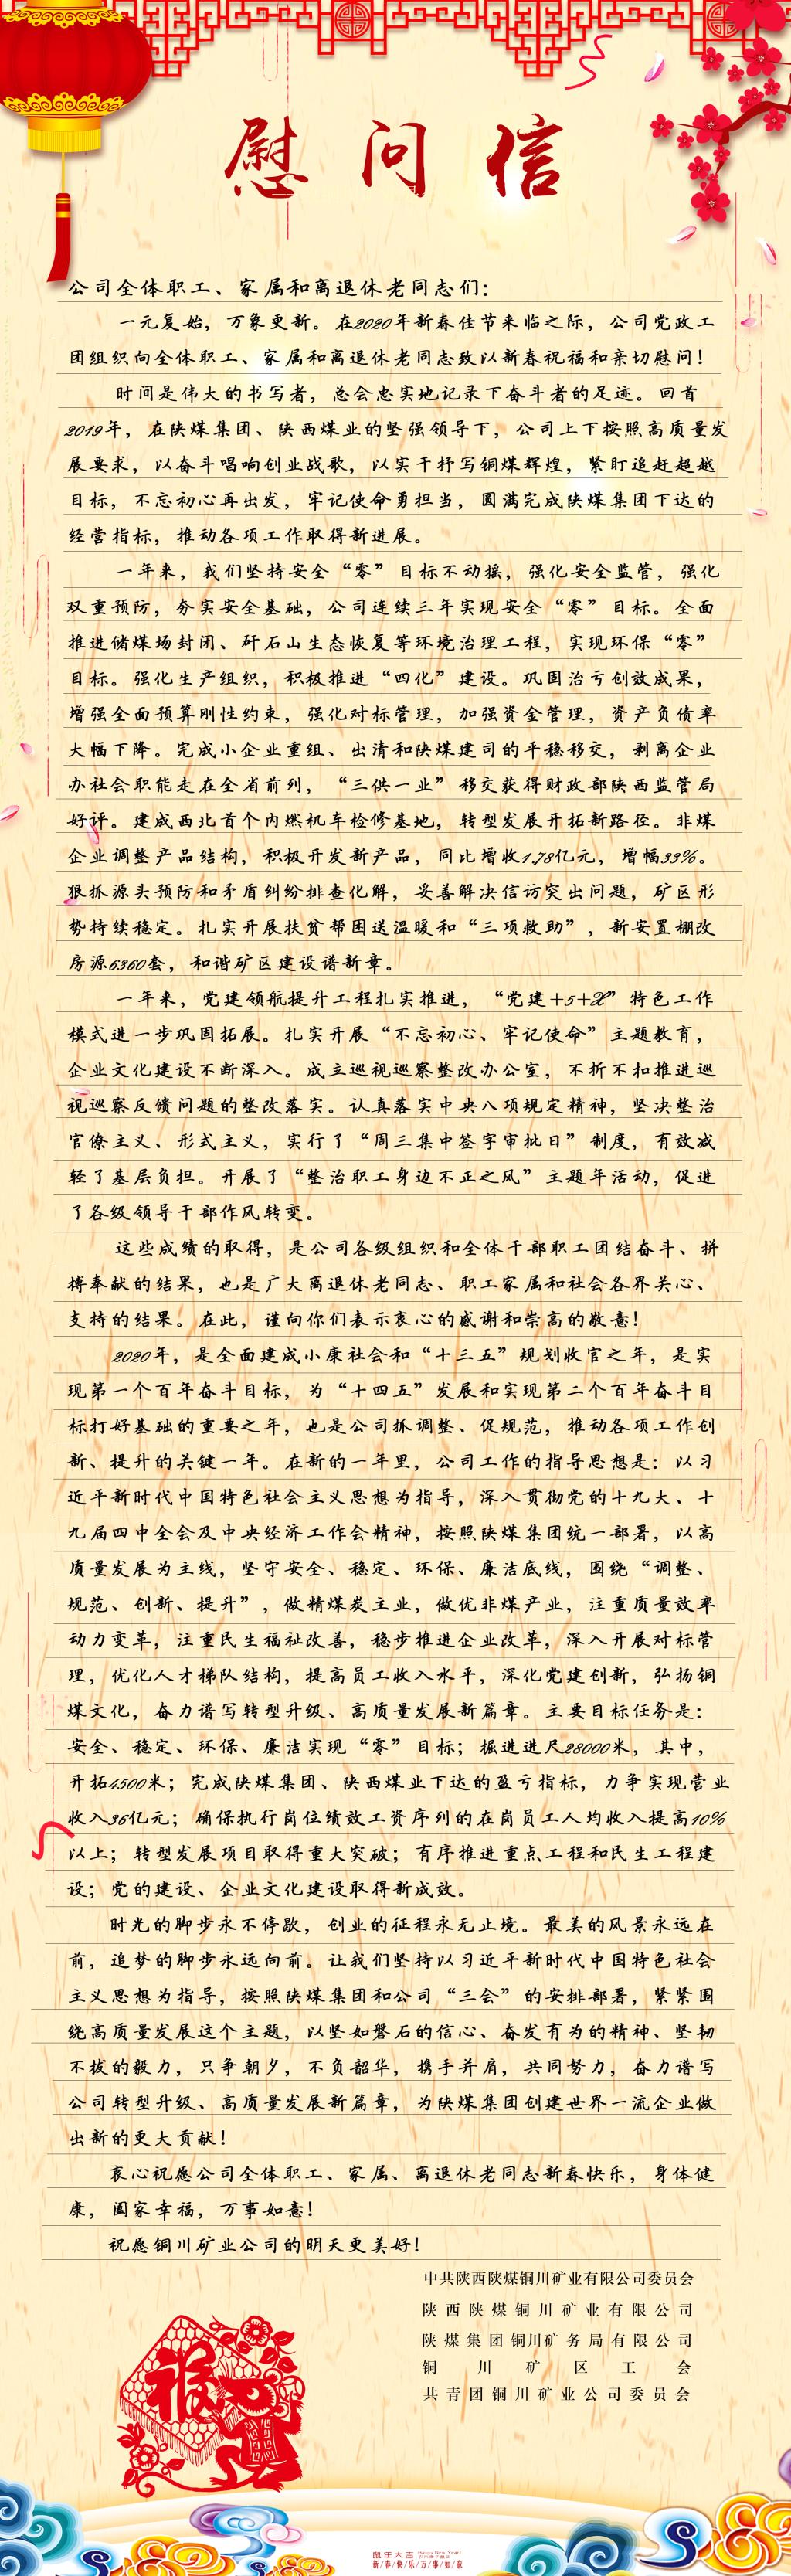 慰问信
公司全体职工、家属和离退休老同志们：
一元复始，万象更新。在2020年新春佳节来临之际，公司党政工
团组织向全体职工、家属和离退休老同志致以新春祝福和亲切慰问！
时间是伟大的书写者，总会忠实地记录下奋斗者的足迹。回首
2019年，在陕煤集团、陕西煤业的坚强领导下，公司上下按照高质量发
展要求，以奋斗唱响创业战歌，以实干抒写铜煤辉煌，紧盯追赶超越
目标，不忘初心再出发，牢记使命勇担当，圆满完成陕煤集团下达的
经营指标，推动各项工作取得新进展。
一年来，我们坚持安全“零”目标不动摇，强化安全监管，强化
双重预防，夯实安全基础，公司连续三年实现安全“零”目标。全面
推进储煤场封闭、矸石山生态恢复等环境治理工程，实现环保“零”
目标。强化生产组织，积极推进“四化”建设。巩固治亏创效成果，
增强全面预算刚性约束，强化对标管理，加强资金管理，资产负债率
大幅下降。完成小企业重组、出清和陕煤建司的平稳移交，剥离企业
办社会职能走在全省前列，“三供一业”移交获得财政部陕西监管局
好评。建成西北首个内燃机车检修基地，转型发展开拓新路径。非煤
企业调整产品结构，积极开发新产品，同比增收1.78亿元，增幅33%。
狠抓源头预防和矛盾纠纷排查化解，妥善解决信访突出问题，矿区形
势持续稳定。扎实开展扶贫帮困送温暖和“三项救助”，新安置棚改
房源6360套，和谐矿区建设谱新章。
一年来，党建领航提升工程扎实推进，“党建+5+X”特色工作
模式进一步巩固拓展。扎实开展“不忘初心、牢记使命”主题教育，
企业文化建设不断深入。成立巡视巡察整改办公室，不折不扣推进巡
视巡察反馈问题的整改落实。认真落实中央八项规定精神，坚决整治
官僚主义、形式主义，实行了“周三集中签字审批日”制度，有效减
轻了基层负担。开展了“整治职工身边不正之风”主题年活动，促进
了各级领导干部作风转变。
这些成绩的取得，是公司各级组织和全体干部职工团结奋斗、拼
搏奉献的结果，也是广大离退休老同志、职工家属和社会各界关心、
支持的结果。在此，谨向你们表示衷心的感谢和崇高的敬意！
2020年，是全面建成小康社会和“十三五”规划收官之年，是实
现第一个百年奋斗目标，为“十四五”发展和实现第二个百年奋斗目
标打好基础的重要之年，也是公司抓调整、促规范，推动各项工作创
新、提升的关键一年。在新的一年里，公司工作的指导思想是：以习
近平新时代中国特色社会主义思想为指导，深入贯彻党的十九大、十
九届四中全会及中央经济工作会精神，按照陕煤集团统一部署，以高
质量发展为主线，坚守安全、稳定、环保、廉洁底线，围绕“调整、
规范、创新、提升”，做精煤炭主业，做优非煤产业，注重质量效率
动力变革，注重民生福祉改善，稳步推进企业改革，深入开展对标管
理，优化人才梯队结构，提高员工收入水平，深化党建创新，弘扬铜
煤文化，奋力谱写转型升级、高质量发展新篇章。主要目标任务是：
安全、稳定、环保、廉洁实现“零”目标；掘进进尺28000米，其中，
开拓4500米；完成陕煤集团、陕西煤业下达的盈亏指标，力争实现营业
收入36亿元；确保执行岗位绩效工资序列的在岗员工人均收入提高10%
以上；转型发展项目取得重大突破；有序推进重点工程和民生工程建
设；党的建设、企业文化建设取得新成效。
时光的脚步永不停歇，创业的征程永无止境。最美的风景永远在
前，追梦的脚步永远向前。让我们坚持以习近平新时代中国特色社会
主义思想为指导，按照陕煤集团和公司“三会”的安排部署，紧紧围
绕高质量发展这个主题，以坚如磐石的信心、奋发有为的精神、坚韧
不拔的毅力，只争朝夕，不负韶华，携手并肩，共同努力，奋力谱写
公司转型升级、高质量发展新篇章，为陕煤集团创建世界一流企业做
出新的更大贡献！
衷心祝愿公司全体职工、家属、离退休老同志新春快乐，身体健
康，阖家幸福，万事如意！
祝愿铜川矿业公司的明天更美好！
中共陕西陕煤铜川矿业有限公司委员会
陕西陕煤铜川矿业有限公司
陕煤集团铜川矿务局有限公司
铜川矿区工会
共青团铜川矿业公司委员会
福
鼠年大吉
新/春/快/乐/万/事/如/意